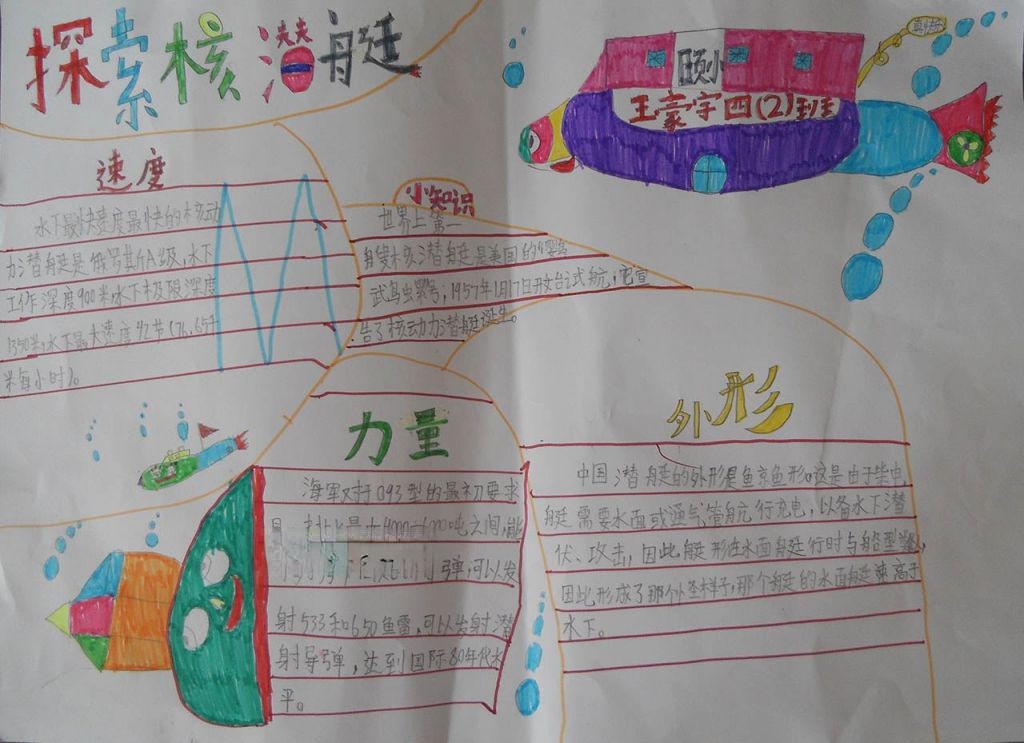 探索核潜艇
颐小
王豪宇四(2)班
速度
水下最快速度最快的核动
力潜艇是俄罗其斤A级,水下
工作深度900米,水下极限深度
1350米,水下最大速度42节(76.65千
米每小时)。
小知识
世界上第一
艘核潜艇是美国的“鹦鹉
号,1957年1月17日开始试航,它宣
告了核动力潜艇诞生。
力量
海军对于093型的最初要求
吨之间,能
弹,可以发
射533和650鱼雷,可以发射潜
射导弹,达到国际80年代水
平。
外形
中国潜艇的外形是鱼京鱼形。这是由于柴电
艇需要水面或通气管航行充电,以备水下潜
伏、攻击,因此艇形在水面艇行时与船型
因此形成了那个怪样子,那个艇的水面艇速高于
水下。